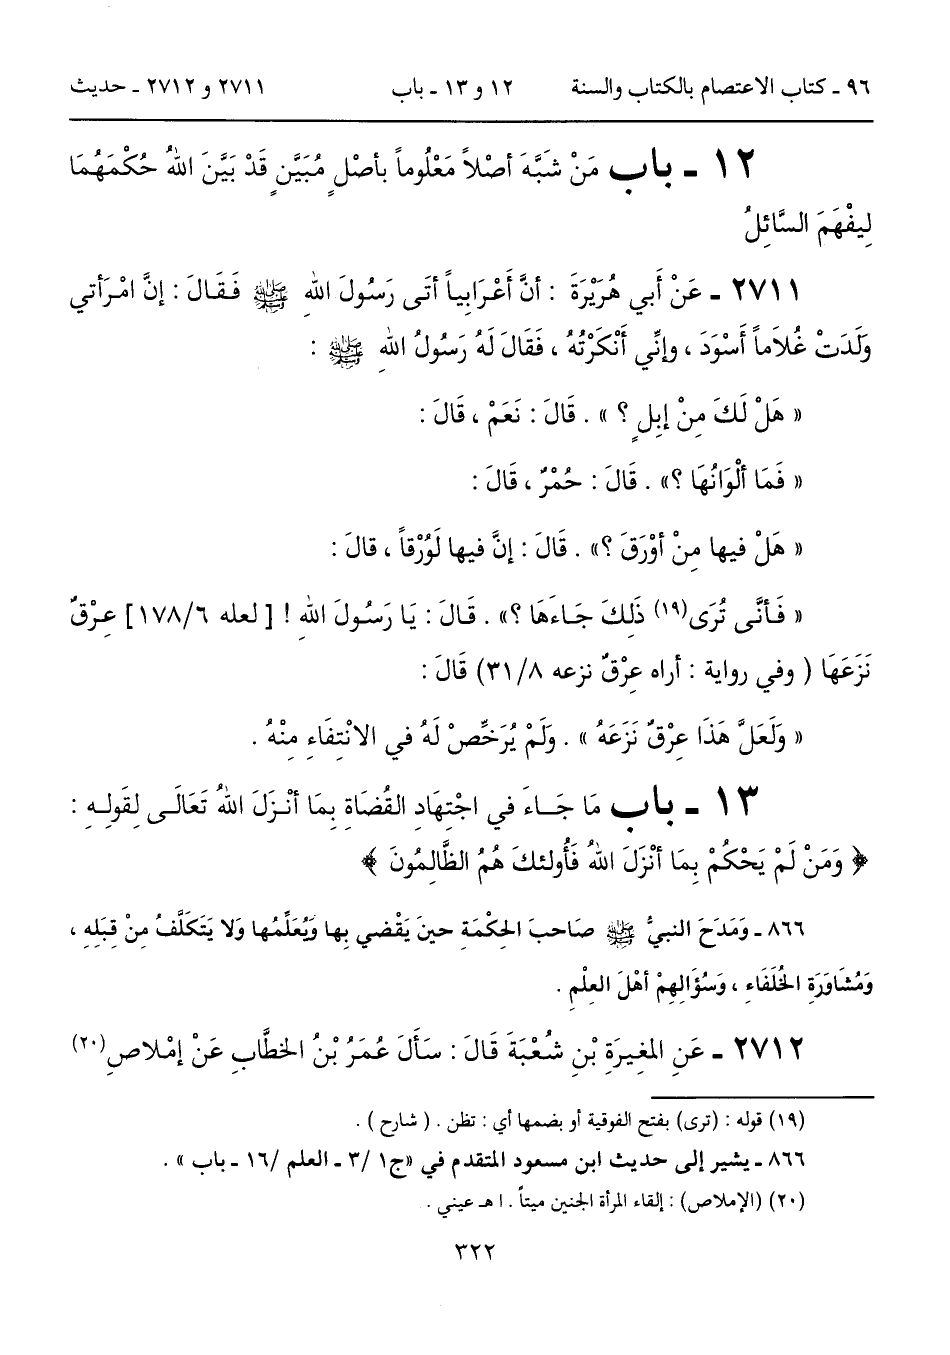 ٩٦ ـ كتاب الاعتصام بالكتاب والسنة ١٢ و ١٣ ـ باب ٢٧١١ و ٢٧١٢ ـ حديث
١٢ ـ باب مَنْ شَبَّهَ أصْلاً مَعْلُوماً بأصْلٍ مُبَيَّنٍ قَدْ بَيَّنَ اللهُ حُكْمَهُمَا
لِيفْهَمَ السَّائِلُ
٢٧١١ ـ عَنْ أبي هُرَيْرَةَ : أنَّ أَعْرَابِياً أتَى رَسُولَ اللهِ ﷺ فَقَالَ : إنَّ امْرَأتي
وَلَدَتْ غُلَاماً أَسْوَدَ ، وإنِّي أَنْكَرْتُهُ ، فَقَالَ لَهُ رَسُولُ اللهِ ﷺ :
« هَلْ لَكَ مِنْ إبِلٍ ؟ » . قَالَ : نَعَمْ ، قَالَ :
« فَمَا ألْوَانُهَا ؟» . قَالَ : حُمْرٌ ، قَالَ :
« هَلْ فيها مِنْ أوْرَقَ ؟» . قَالَ : إنَّ فيها لَوُرْقاً ، قالَ :
« فَأنَّى تُرَى(١٩) ذَلِكَ جَاءَهَا ؟» . قَالَ : يَا رَسُولَ اللهِ ! [ لعله ١٧٨/٦] عِرْقٌ
نَزَعَهَا ( وفي رواية : أراه عِرْقٌ نزعه ٣١/٨) قَالَ :
« وَلَعَلَّ هَذَا عِرْقٌ نَزَعَهُ » . وَلَمْ يُرَخِّصْ لَهُ في الانْتِفَاءِ مِنْهُ .
١٣ ـ باب مَا جَاءَ في اجْتِهَادِ القُضَاةِ بِمَا أنْزَلَ اللهُ تَعَالَى لِقَولِهِ :
﴿ وَمَنْ لَمْ يَحْكُمْ بِمَا أنْزَلَ اللهُ فَأُولئكَ هُمُ الظَّالِمُونَ ﴾
٨٦٦ ـ وَمَدَحَ النبيُّ ﷺ صَاحبَ الحِكْمَةِ حينَ يَقْضي بِها وَيُعَلِّمُها وَلا يَتَكَلَّفُ مِنْ قِبَلِهِ ،
وَمُشَاوَرَةِ الخُلَفَاءِ ، وَسُؤَالِهِمْ أهْلَ العِلْمِ .
٢٧١٢ ـ عَنِ المغِيرَةِ بْنِ شُعْبَةَ قَالَ : سَأَلَ عُمَرُ بْنُ الخطَّابِ عَنْ إمْلاصِ(٢٠)
(١٩) قوله : (ترى) بفتح الفوقية أو بضمها أي : تظن . ( شارح ) .
٨٦٦ ـ يشير إلى حديث ابن مسعود المتقدم في «ج١ /٣ ـ العلم /١٦ ـ باب » .
(٢٠) (الإملاص) : إلقاء المرأة الجنين ميتاً . ا هـ عيني .
٣٢٢